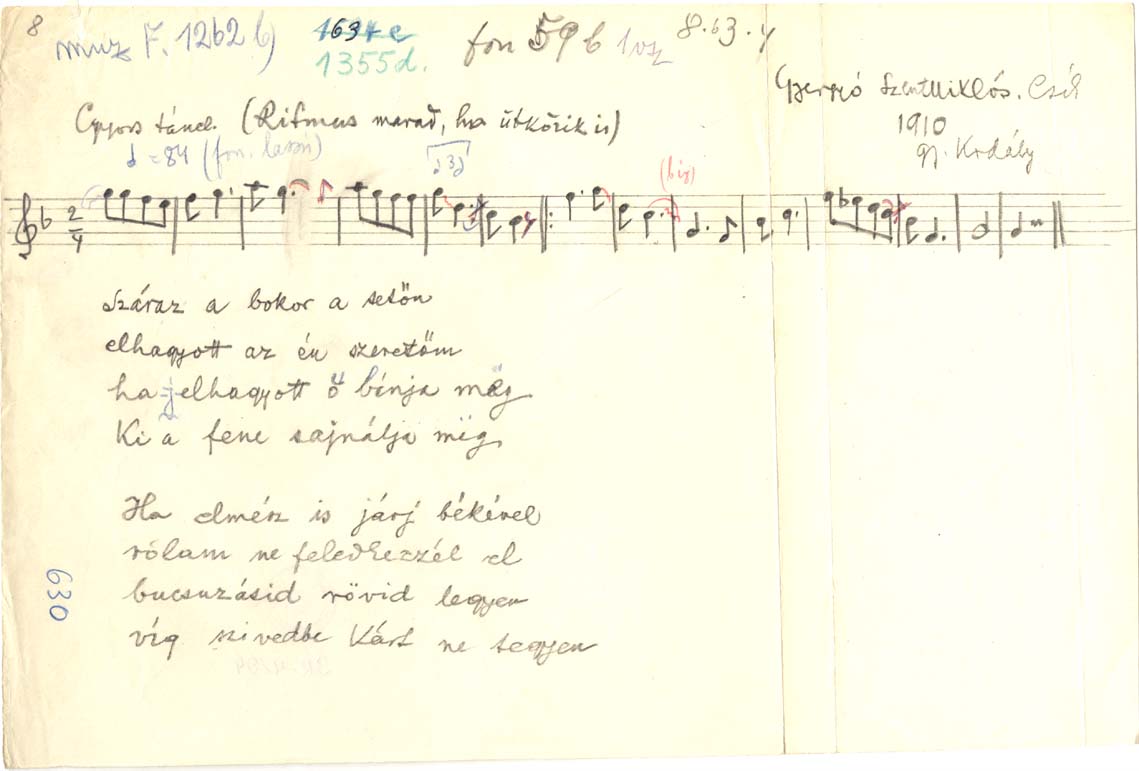 8
muz F. 1262 b)
1355d.
fon 59 b 1vsz
8.63.4
Gyergyó Szentmiklós. Csík
1910
gy. Kodály
Gyors tánc. (Ritmus marad, ha ütközik is)
= 84 (fon. lassú)
3
(bis)
2
4
Száraz a bokor a tetőn
elhagyott az én szeretőm
ha jelhagyott ő bánja
Ki a fene sajnálja mëg
Ha elmész is járj békével
rólam ne feledkezzél el
bucsuzásid rövid legyen
víg szivedbe kárt ne tegyen
630